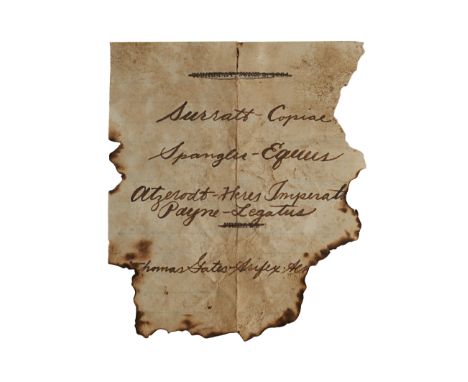 Surratt - Copiae
Spangler - Equus
Atzerodt - Heres Imperat
Payne - Legatus
Thomas Gates - Artifex